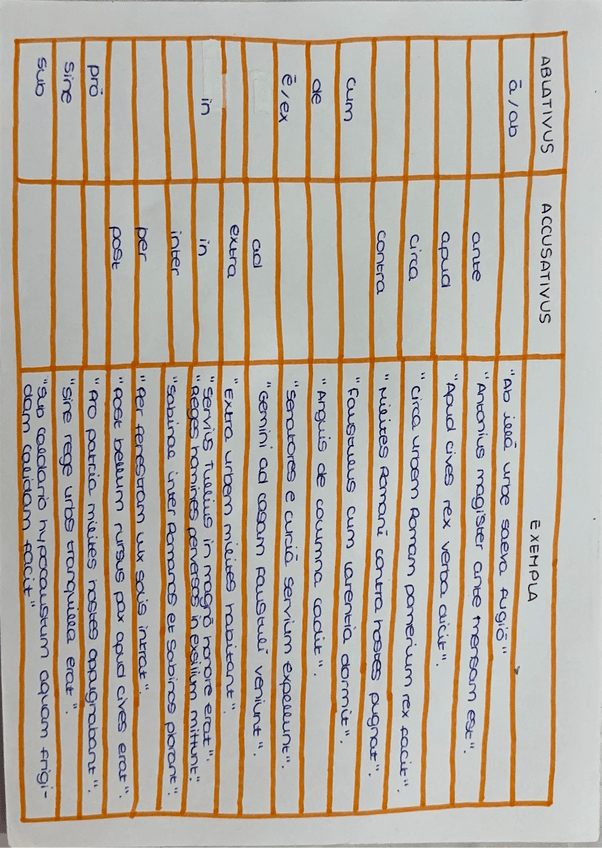 ABLATIVUS ACCUSATIVUS EXEMPLA
ā/ab "Ab illā urbe saeva fugiō".
ante "Antonius magister ante mensam est".
apud "Apud cives rex verba dicit".
circa "Circa urbem Romam pomerium rex facit".
contra "Milites Romanī contra hostes pugnat".
cum "Faustulus cum Larentia dormit".
de "Anguis de columna cadit".
ē/ex "Senatores e curiā Servium expellunt".
ad "Gemini ad casam Faustulī veniunt".
extra "Extra urbem milites habitant".
in in "Servius Tullius in magnō honore erat".
"Reges homines perversos in exsilium mittunt".
inter "Sabinae inter Romanos et Sabinos plorant".
per "Per fenestram lux solis intrat".
post "Post bellum rursus pax apud cives erat".
prō "Pro patria milites hostes oppugnabant".
sine "Sine rege urbs tranquilla erat".
sub "Sub caldario hypocaustum aquam frigi-
dam calidam facit"